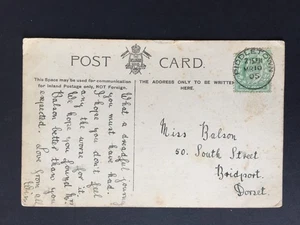 POST CARD.
This Space may be used for communication
for Inland Postage only, NOT Foreign.
THE ADDRESS ONLY TO BE WRITTEN
HERE.
What a dreadful journey
you must have had.
I hope you don't feel
any the worse for it.
We hope you found Mr
Balson better than you
expected. Love from all
MIDDLETOWN
05
Miss Balson
50. South Street
Bridport.
Dorset